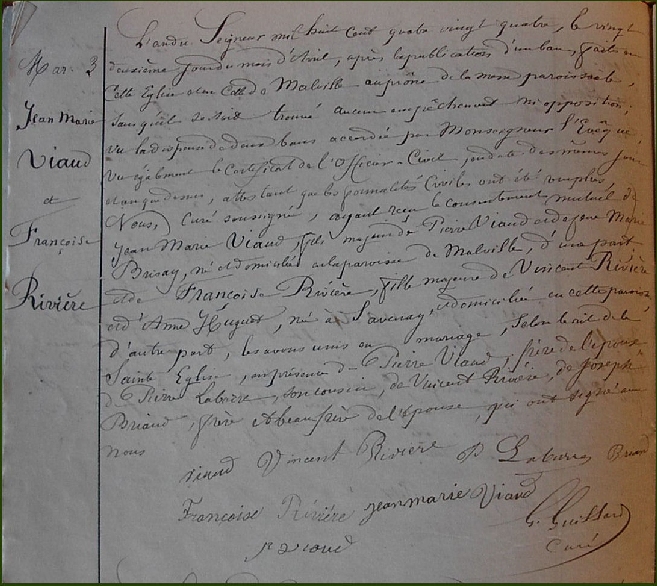 Mar. 3
Jean Marie
Viaud
et
Françoise
Rivière
L'an du Seigneur mil huit cent quatre vingt quatre, le vingt
deuxième jour du mois d'Avril, après la publication d'un ban, faite en
cette Eglise et en celle de Malville au prône de la messe paroissiale,
sans qu'il se soit trouvé aucun empêchement ni opposition,
vu la dispense de deux bans accordée par Monseigneur l'Evêque
vu également le Certificat de l'Officier Civil, en date des mêmes jour
et an que dessus, attestant que les formalités Civiles ont été remplies
Nous, curé soussigné, ayant reçu le consentement mutuel de
Jean Marie Viaud, fils majeur de Pierre Viaud et de feue Marie
né et domicilié en la paroisse de Malville, d'une part
et de Françoise Rivière, fille majeure de Vincent Rivière
et d'Anne Huguet, née à Savenay, domiciliée en cette paroisse
d'autre part, les avons unis en mariage, selon le rit de la
Sainte Eglise, en présence de Pierre Viaud, frère de l'époux
de Pierre Laborre, son cousin, de Vincent Rivière, de Joseph
Briand, frère et beau frère de l'épouse, qui ont signé avec
nous
Viaud Vincent Rivière P Briand
Françoise Rivière Jean marie Viaud
G. Guillard
Curé